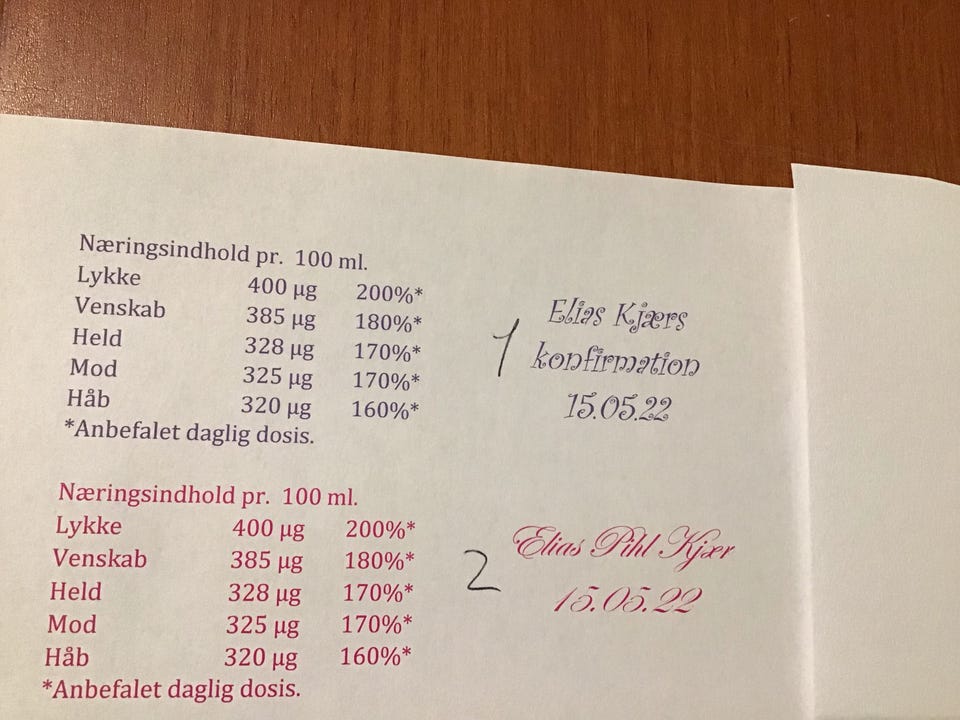 Næringsindhold pr. 100 ml.
Lykke 400 µg 200%*
Venskab 385 µg 180%*
Held 328 µg 170%*
Mod 325 µg 170%*
Håb 320 µg 160%*
*Anbefalet daglig dosis.
1
Elias Kjærs
konfirmation
15.05.22
Næringsindhold pr. 100 ml.
Lykke 400 µg 200%*
Venskab 385 µg 180%*
Held 328 µg 170%*
Mod 325 µg 170%*
Håb 320 µg 160%*
*Anbefalet daglig dosis.
2
Elias Pihl Kjær
15.05.22